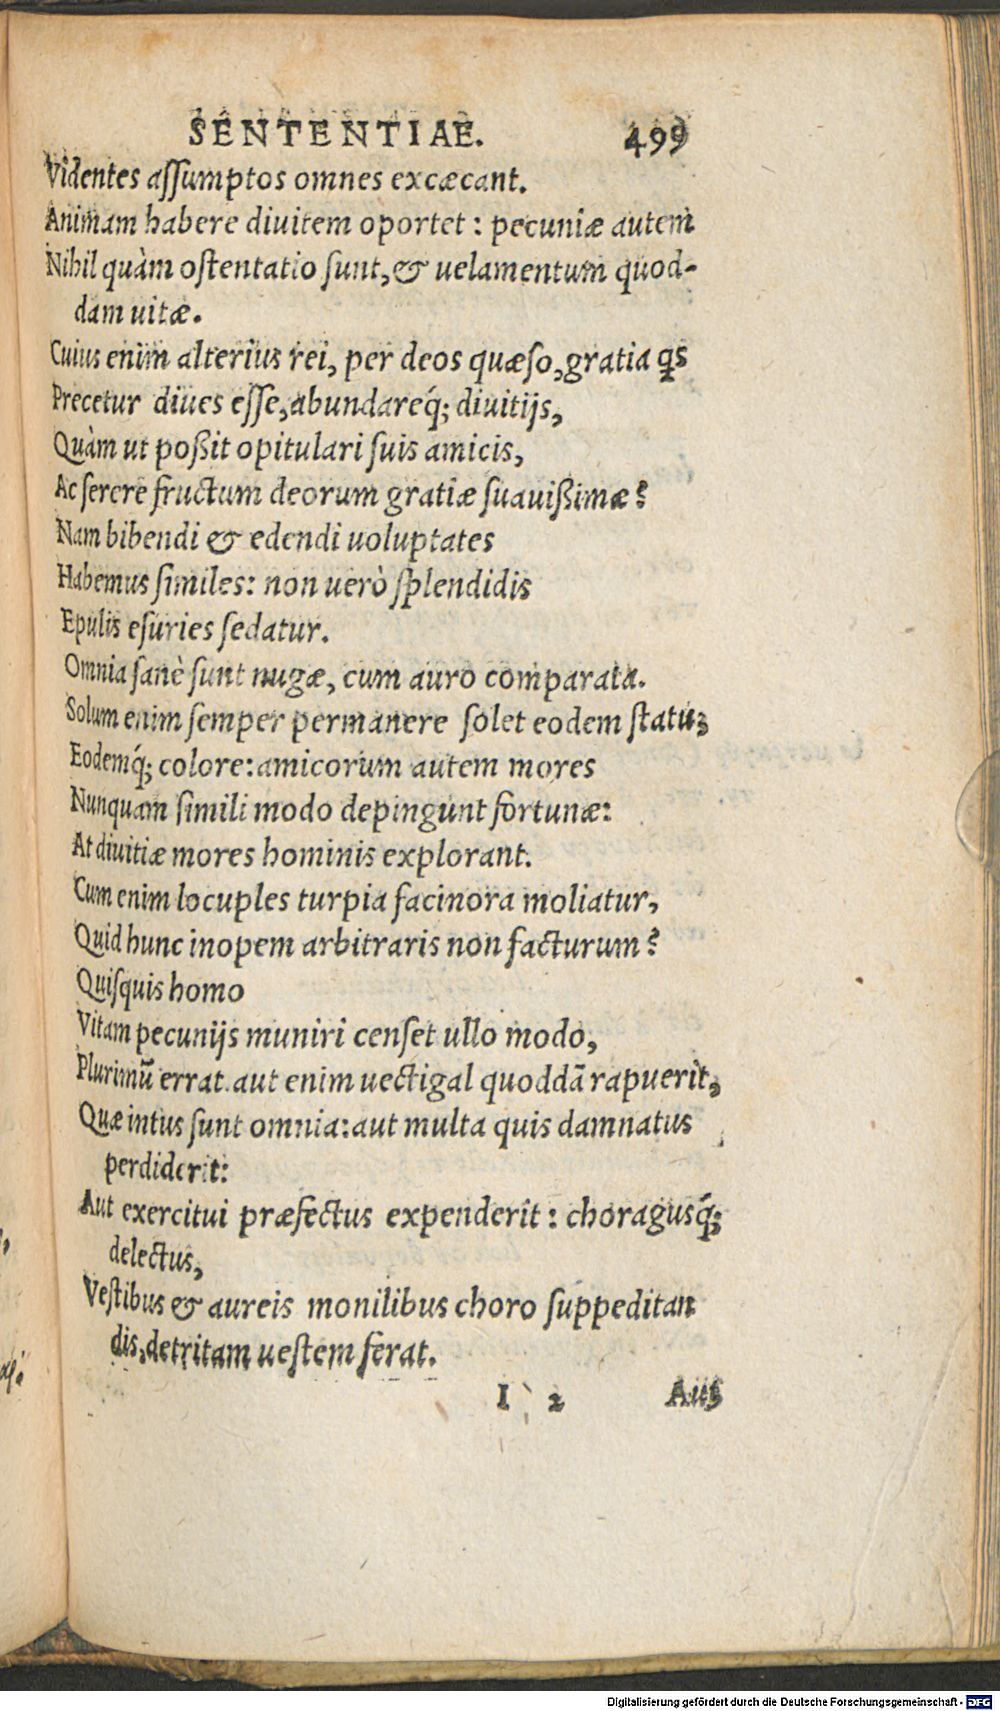 SENTENTIAE. 499
Videntes aſſumptos omnes excæcant.
Animam habere diuitem oportet : pecuniæ autem
Nihil quàm oſtentatio ſunt, & uelamentum quod-
dam uitæ.
Cuius enim alterius rei, per deos quæſo, gratia qs
Precetur diues eſſe, abundareq́; diuitijs,
Quàm ut poßit opitulari ſuis amicis,
Ac ſerere fructum deorum gratiæ ſuauißimæ?
Nam bibendi & edendi uoluptates
Habemus ſimiles: non uerò ſplendidis
Epulis eſuries ſedatur.
Omnia ſanè ſunt nugæ, cum auro comparata.
Solum enim ſemper permanere ſolet eodem ſtatu,
Eodemq́; colore: amicorum autem mores
Nunquam ſimili modo depingunt fortunæ:
At diuitiæ mores hominis explorant.
Cum enim locuples turpia facinora moliatur,
Quid hunc inopem arbitraris non facturum?
Quiſquis homo
Vitam pecunijs muniri cenſet ullo modo,
Plurimū errat. aut enim uectigal quoddā rapuerit,
Quæ intus ſunt omnia: aut multa quis damnatus
perdiderit:
Aut exercitui præfectus expenderit : choragusq́;
delectus,
Veſtibus & aureis monilibus choro ſuppeditan
dis, detritam ueſtem ferat.
I 2 Aut
Digitalisierung gefördert durch die Deutsche Forschungsgemeinschaft - DFG